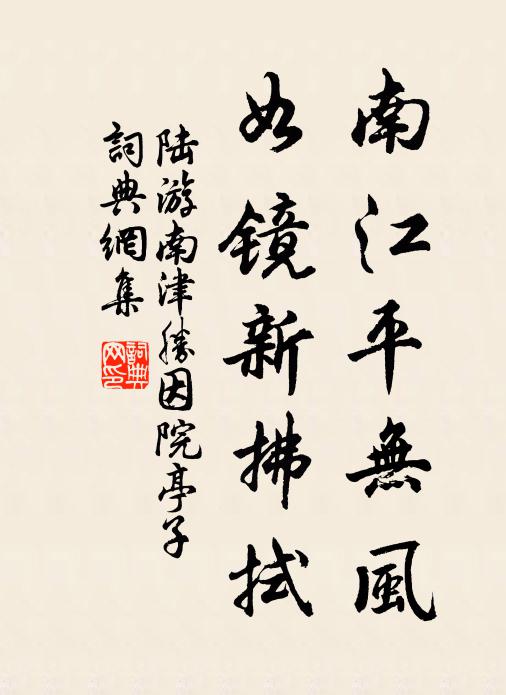 南江平無風
如镜新拂拭
陆游南津勝因院亭子
詞典網集
詞典网印